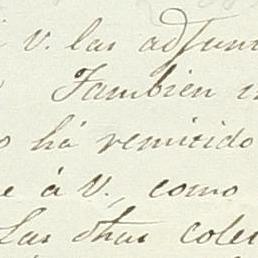 V. las adjun
Tambien
há remitido
á V., como
Las otras cole